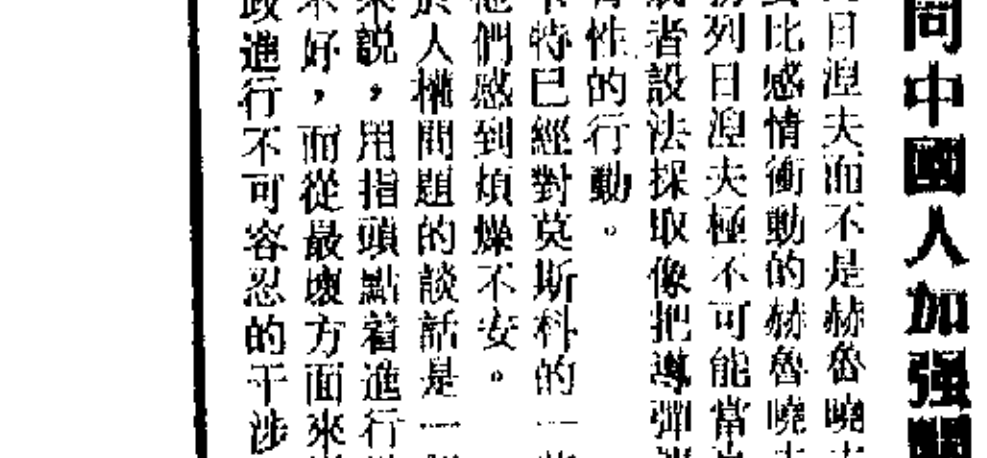 問中國人加强
日湼夫而不是赫魯曉夫
比感情衝動的赫魯曉夫
列日湼夫極不可能當
者設法採取像把導彈
性的行動。
特已經對莫斯科的一些
他們感到煩燥不安。
於人權問題的談話是一
來説,用指頭點着進行
不好,而從最壞方面來
政進行不可容忍的干涉